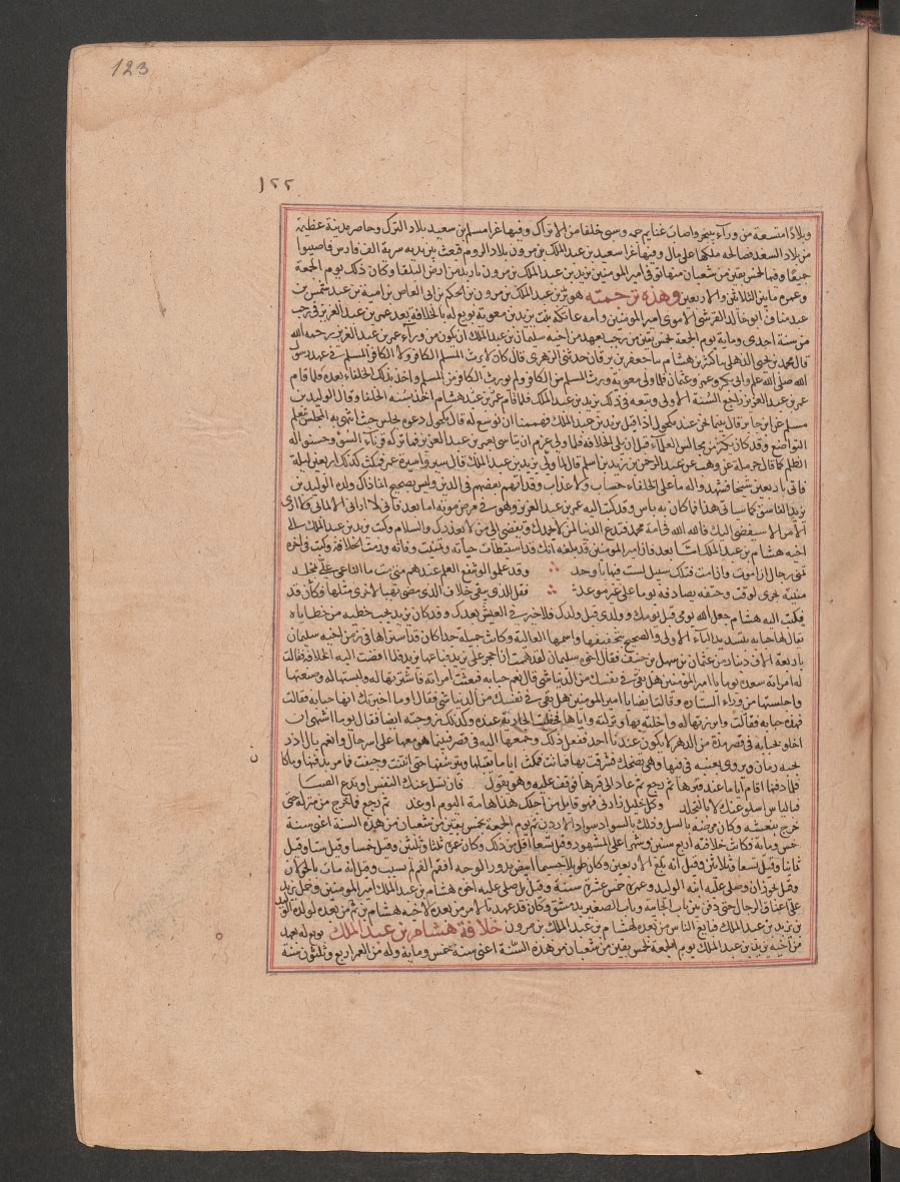 123
١٢٢
وبلادًا متسعة من ورآء بلنجر واصاب غنايم جمه وسبى خلقا من الاتراك وفيها غزا مسلم بن سعيد بلاد الترك وحاصر مدينة عظيمة
من بلاد السغد فصالحه ملكها على مال وفيها غزا سعيد بن عبد الملك بن مرون بلاد الروم فبعث بين يديه سرية الف فارس فاصيبوا
جميعًا وفيها لخمس بقين من شعبان منها توفى امير المومنين يزيد بن عبد الملك بن مرون باربد من ارض البلقا وكان ذلك يوم الجمعة
وعمره ما بين الثلاثين والاربعين وهذه ترجمته هو يزيد بن عبد الملك بن مرون بن الحكم بن ابى العاص بن امية بن عبد شمس بن
عبد مناف ابو خالد القرشى الاموى امير المومنين وامه عاتكة بنت يزيد بن معوية بويع له بالخلافة بعد عمر بن عبد العزيز فى رجب
من سنة احدى وماية يوم الجمعة لخمس بقين من رجب بعهد من اخيه سليمان بن عبد الملك ان يكون من ورآء عمر بن عبد العزيز رحمه الله
قال محمد بن يحيى الذهلى ثنا كثير بن هشام ثنا جعفر بن برقان حدثنى الزهرى قال كان لا يرث المسلم الكافر ولا الكافر المسلم فى عهد رسول
الله صلى الله عليه وابى بكر وعمر وعثمان فلما ولى معوية ورث المسلم من الكافر ولم يورث الكافر من المسلم واخذ بذلك الخلفاء بعده فلما قام
عمر بن عبد العزيز راجع السُنة الاولى وتبعه فى ذلك يزيد بن عبد الملك فلما قام عمر بن عبد هشام اخذ بسُنة الخلفا وقال الوليد بن
مسلم عن ابن جابر قال بينما نحن عند مكحول اذ اقبل يزيد بن عبد الملك فهممنا ان نوسع له قال مكحول دعوه يجلس حيث انتهى به المجلس يتعلم
التواضع وقد كان يكثر من مجالس العلمآء قبل ان يلى الخلافة فلما ولى عزم ان يتاسى بعمر بن عبد العزيز فما تركه قرنآء السُوء وحسنوا له
الظلم كما قال حرملة عن وهب عن عبد الرحمن بن زيد بن اسلم قال لما ولى يزيد بن عبد الملك قال سيروا سيرة عمر فمكث كذلك اربعين ليلة
فاتى باربعين شيخا فشهدوا له ما على الخلفاء حساب ولا عذاب وقد اتهم بعضهم فى الدين وليس بصحيح انما ذاك ولده الوليد بن
يزيد الفاسق كما سياتى هذا فما كان به باس وقد كتب اليه عمر بن عبد العزيز وهو فى مرض موته اما بعد فانى لا ارانى الا لمابى ولا ارى
الامر الا سيفضى اليك فالله الله فى امة محمد فتدع الدنيا لمن لا يحمدك وتفضى الى من لا يعذرك والسلام وكتب يزيد بن عبد الملك الى
اخيه هشام بن عبد الملك امّا بعد فان امير المومنين قد بلغه انك قد استبطات حياته وتمنيت وفاته ورمت الخلافة وكتب فى اخره
تمنى رجال ان اموت وان امت فتلك سبيل لست فيها باوحد وقد علموا لو ينفع العلم عندهم متى مت ما الباغى على بمخلد
منيته تجرى لوقت وحتفه يصادفه يوما على غير موعد فقل للذى يبقى خلاف الذى مضى تهيا لاخرى مثلها فكان قد
فكتب اليه هشام جعل الله يومى قبل يومك وولدى قبل ولدك فلا خير فى العيش بعدك وقد كان يزيد يحب حظية من حظاياه
يقال لها حبابه بتشديد الباء الاولى والصحيح بتخفيفها واسمها العالية وكانت جميلة جدا كان قد اشتراها فى زمن اخيه سليمان
باربعة الاف دينار من عثمان بن سهل بن حنيف فقال اخوه سليمان لقد هممت ان احجر على يزيد فباعها يزيد فلما افضت اليه الخلافة قالت
له امراته سعدة يوما يا امير المومنين هل بقى فى نفسك من الدنيا شى قال نعم حبابه فبعثت امراته فاشترتها له ولبستها له وصنعتها
واجلستها من وراء الستاره وقالت ايضا يا امير المومنين هل بقى فى نفسك من الدنيا شى فقال اوما اخبرتك انها حبابه فقالت
فهذه حبابه فقالت وابرزتها له واخلته بها وتركته واياها فحظيت الجارية عنده وكذلك زوجته ايضا فقال يوما اشتهى ان
اخلو بحبابه فى قصر مدة من الدهر لا يكون عندنا احد ففعل ذلك وجمعها اليه فى قصر فبينما هو معها على اسر حال وانعم بال اذ رمى
لحبه رمان ويروى بعنبه فى فيها وهى تضحك فشرقت بها فماتت فمكث اياما يقبلها ويترشفها حتى انتنت وجيفت فامر بدفنها وبكا
فلما دفنها اقام اياما عند قبرها ثم رجع ثم عاد الى قبرها فوقف عليه وهو يقول فان تسل عنك النفس او تدع الصبا
فبالياس اسلو عنك لا بالتجلد وكل خليل زارنى فهو قايل من اجلك هذا هامة اليوم او غد ثم رجع فما خرج من منزله حتى
خرج بنعشه وكان مرضه بالسل وذلك بالسواد سواد الاردن ثم يوم الجمعة لخمس بقين من شعبان من هذه السنة اعنى سنة
خمس وماية وكانت خلافته اربع سنين وشهرا على المشهور وقيل تسعا اقل من ذلك وكان عمره ثلثا وثلثين وقيل خمسا وقيل ستا وقيل
ثمانيا وقيل تسعا وثلاثين وقيل انه بلغ الاربعين وكان طويلا جسيما ابيض مدور الوجه افقم الفم لم يشيب وقيل انه مات بالجولان
وقيل بحوران وصلى عليه ابنه الوليد وعمره خمس عشرة سنة وقيل بل صلى عليه اخوه هشام بن عبد الملك امير المومنين وحمل
على اعناق الرجال حتى دفن بين باب الجابية وباب الصغير بدمشق وكان قد عهد بالامر من بعده لاخيه هشام بن ثم من بعده لولده الوليد
بن يزيد بن عبد الملك فبايع الناس من بعده لهشام بن عبد الملك بن مرون خلافة هشام بن عبد الملك بويع له بعهد
من اخيه يزيد بن عبد الملك يوم الجمعة لخمس بقين من شعبان من هذه السنة اعنى سنة خمس وماية وله من العمر اربع وثلثون سنة